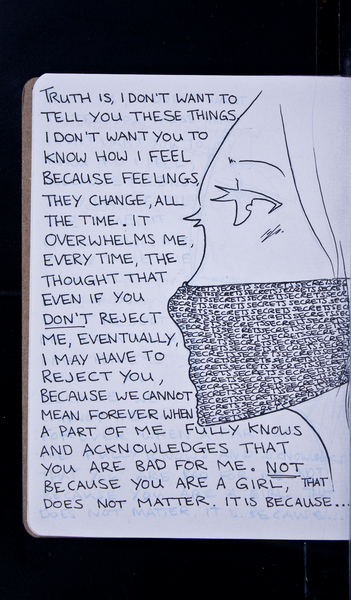 TRUTH IS, I DON'T WANT TO
TELL YOU THESE THINGS
I DON'T WANT YOU TO
KNOW HOW I FEEL
BECAUSE FEELINGS,
THEY CHANGE, ALL
THE TIME. IT
OVERWHELMS ME,
EVERY TIME, THE
THOUGHT THAT
EVEN IF YOU
DON'T REJECT
ME, EVENTUALLY,
I MAY HAVE TO
REJECT YOU,
BECAUSE WE CANNOT
MEAN FOREVER WHEN
A PART OF ME FULLY KNOWS
AND ACKNOWLEDGES THAT
YOU ARE BAD FOR ME. NOT
BECAUSE YOU ARE A GIRL, THAT
DOES NOT MATTER. IT IS BECAUSE...
SECRETS SECRETS SECRETS SECRETS